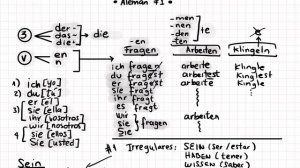 Aleman #1
3 der- das- die- → die
-men -nen -den -ten te
V en n
-en
Fragen Arbeiten Klingeln
1) ich [yo] ich frage arbeite Klingle
2) du [tú] du fragst arbeitest Klinglest
3) er [el] er fragt arbeitet
3) Sie [ella] sie fragt
3) ihr [vosotros] ihr fragt
4) wir [nosotros] es fragt
4) Sie [ellos] wir fragen arbeiten
Sie [Usted] Sie
Sein
#1 Irregulares: SEIN (ser/estar)
HABEN (tener)
WISSEN (saber)